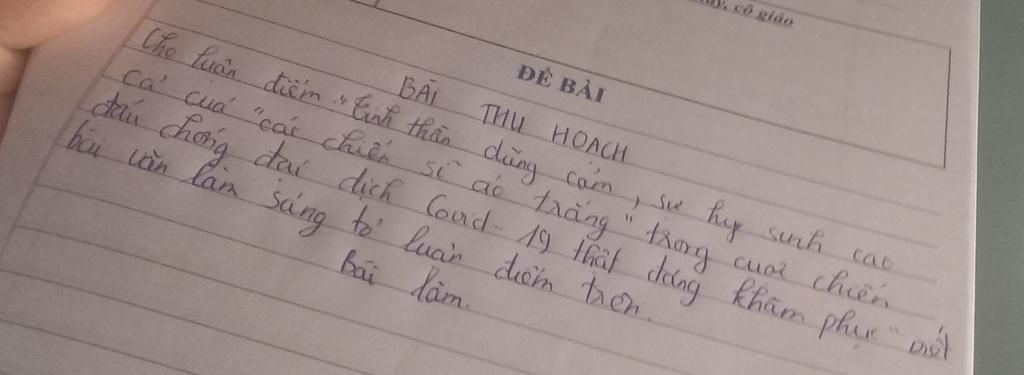 cô giáo
ĐỀ BÀI
BÀI THU HOẠCH
Cho luận điểm "tinh thần dũng cảm, sự hy sinh cao
cả của "các chiến sĩ áo trắng" trong cuộc chiến
đấu chống đại dịch Covid-19 thật đáng khâm phục" viết
bài văn làm sáng tỏ luận điểm trên.
Bài làm.